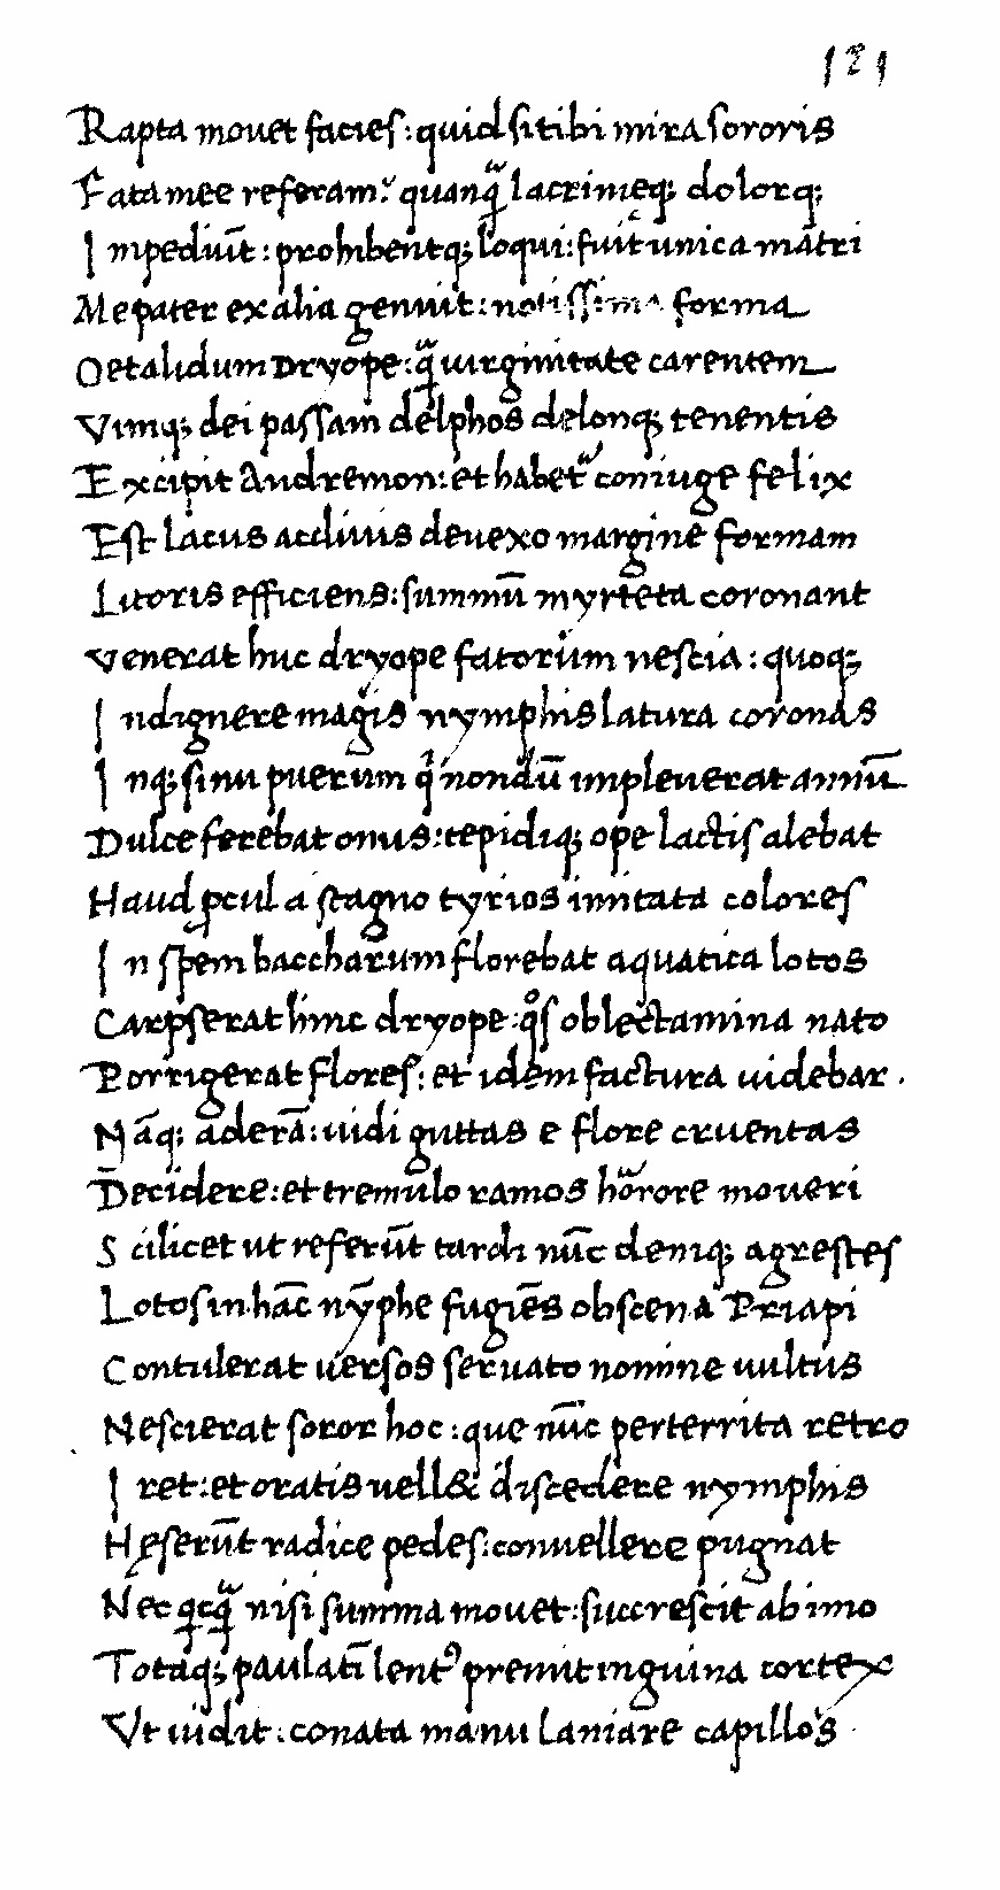 121
Rapta mouet facies: quid si tibi mira sororis
Fata mee referam? quanq̃ lacrimęq; dolorq;
Impediũt: prohibentq; loqui: fuit unica matri
Me pater ex alia genuit: notissima forma
Oetalidum Dryope: q̃ uirginitate carentem
Vimq; dei passam delphos delonq; tenentis
Excipit Andremon: et habet᷒ coniuge felix
Est lacus accliuis deuexo margine formam
Litoris efficiens: summũ myrteta coronant
Venerat huc dryope fatorum nescia: quoq;
Indignere magis nymphis latura coronas
Inq; sinu puerum qͥ nondũ impleuerat annũ
Dulce ferebat onus: tepidiq; ope lactis alebat
Haud ꝓcul a stagno tyrios imitata colores
In spem baccharum florebat aquatica lotos
Carpserat hinc dryope: qͦs oblectamina nato
Porrigerat flores: et idem factura uidebar.
Nãq; aderã: uidi guttas e flore cruentas
Decidere: et tremulo ramos horore moueri
Scilicet ut referũt tardi nũc deniq; agrestes
Lotos in hãc nỹphe fugiẽs obscena Priapi
Contulerat uersos seruato nomine uultus
Nescierat soror hoc: que nũc perterrita retro
Iret: et oratis uell& discedere nymphis
Hęserũt radice pedes: conuellere pugnat
Nec qͥcq̃ nisi summa mouet: succrescit ab imo
Totaq; paulatĩ lentꝰ premit inguina cortex
Vt uidit: conata manu laniare capillos